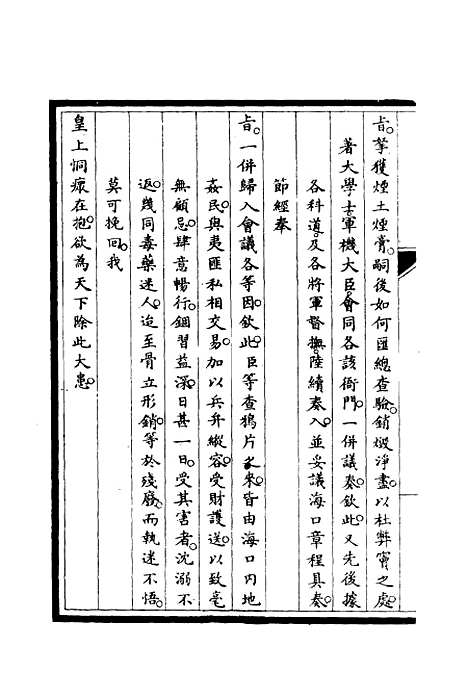 旨。拏獲煙土煙膏。嗣後如何匯總查驗。銷燬淨盡。以杜弊竇之處。
著大學士軍機大臣會同各該衙門。一併議奏。欽此。又先後據
各科道。及各將軍督撫。陸續奏入。並妥議海口章程具奏。
節經奉
旨。一併歸入會議各等因。欽此。臣等查鴉片之來。皆由海口內地
姦民。與夷匪私相交易。加以兵弁縱容。受財護送。以致毫
無顧忌。肆意暢行。錮習益深。日甚一日。受其害者。沈溺不
返。幾同毒藥迷人。迨至骨立形銷。等於殘廢。而執迷不悟。
莫可挽回。我
皇上恫瘝在抱。欲為天下除此大患。